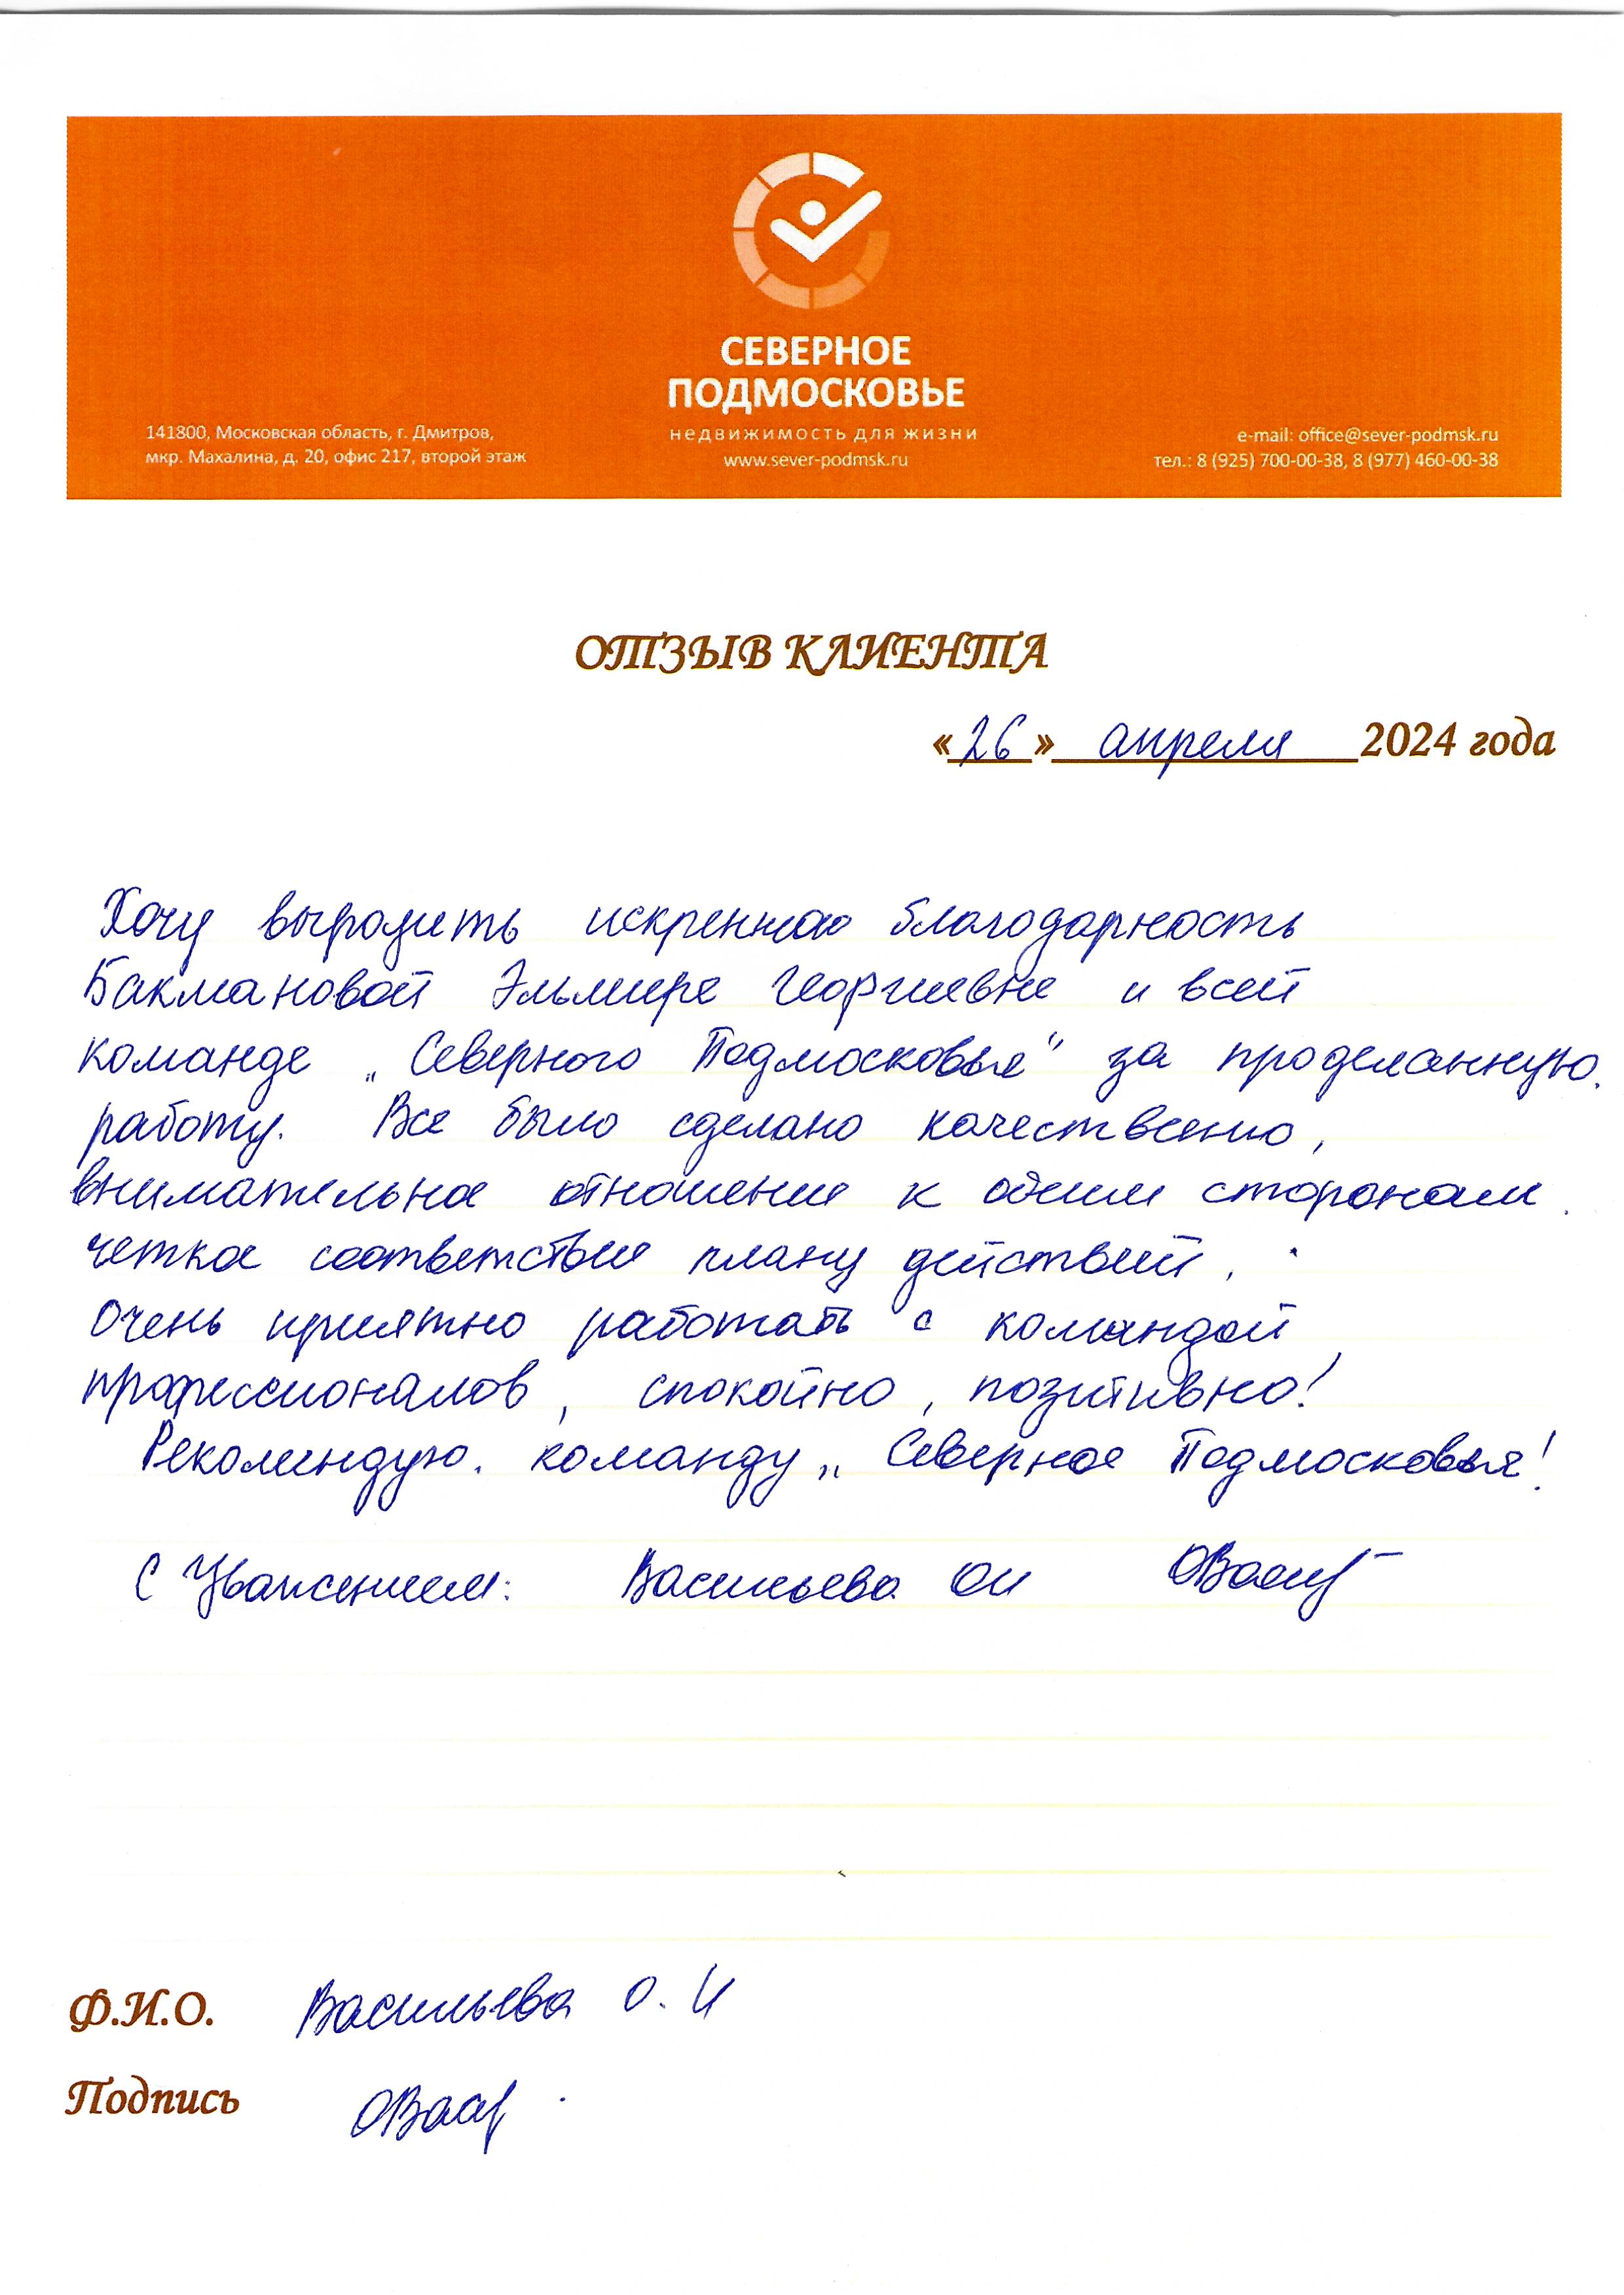 СЕВЕРНОЕ
ПОДМОСКОВЬЕ
недвижимость для жизни
www.sever-podmsk.ru
141800, Московская область, г. Дмитров,
мкр. Махалина, д. 20, офис 217, второй этаж
e-mail: office@sever-podmsk.ru
тел.: 8 (925) 700-00-38, 8 (977) 460-00-38
ОТЗЫВ КЛИЕНТА
«26» апреля 2024 года
Хочу выразить искреннюю благодарность
Бакмановой Эльмире Георгиевне и всей
команде „Северного Подмосковья" за проделанную
работу. Все было сделано качественно,
внимательное отношение к обеим сторонам.
четкое соответствие плану действий.
Очень приятно работать с командой
профессионалов, спокойно, позитивно!
Рекомендую. команду „Северное Подмосковья!
С Уважением: Васильева ОИ
Ф.И.О. Васильева О. И
Подпись